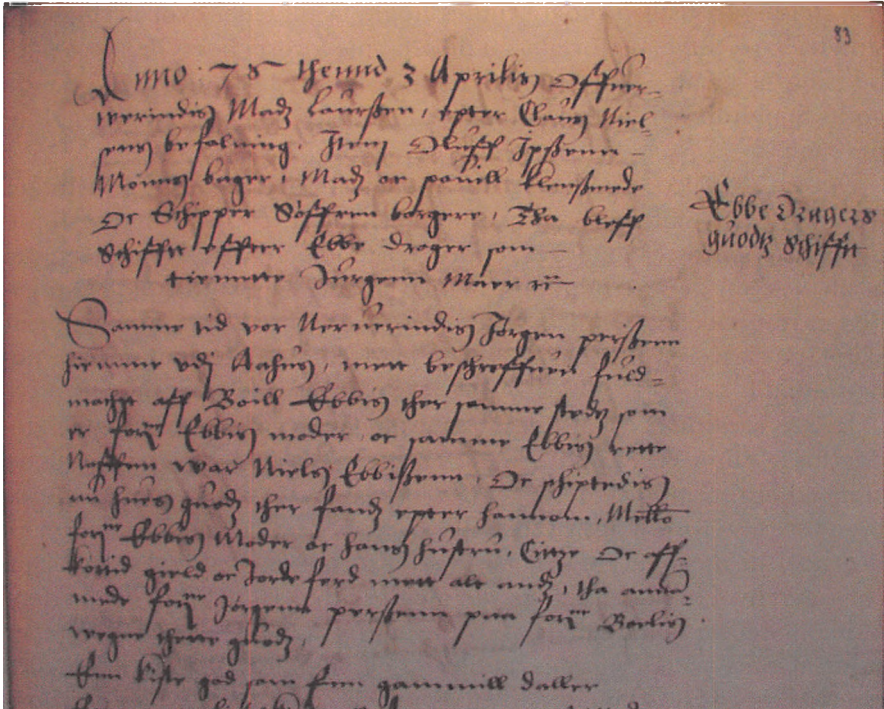 83
Anno · 78 thennd 3 Aprilis Offuer-
werindis Madz Laurßen, epter Claus Niel-
sens befalning. Item Oluff Ipßenn
Monns bager, Madz oc pouill klensmede
Oc Schipper Söffren borgere, Tha bleff
Schifftt effter Ebbe drager som
tientte Jurgenn Maer
Ebbe Dragers
guodtz Schifft
Samme tid vor Neruerindis Jörgen perßenn
hiemme vdj Aahus, mett beschreffuen fuld-
macht aff Boill Ebbis ther samme stedz som
er for^ne Ebbis moder, oc samme Ebbis rette
Naffnn waar Niels Ebbißenn, Oc schiptedis
nu hues guodz ther fandz epter hannom, Mello
for^ne Ebbis Moder oc hans hustru, Citze Oc aff-
kortid gield oc Jorde ferd mett alt andz, tha anna-
mede for^ne Jörgenn perßenn paa for^ne Boelis
wegne thette guodz,
Enn kiste god som enn gammill daller